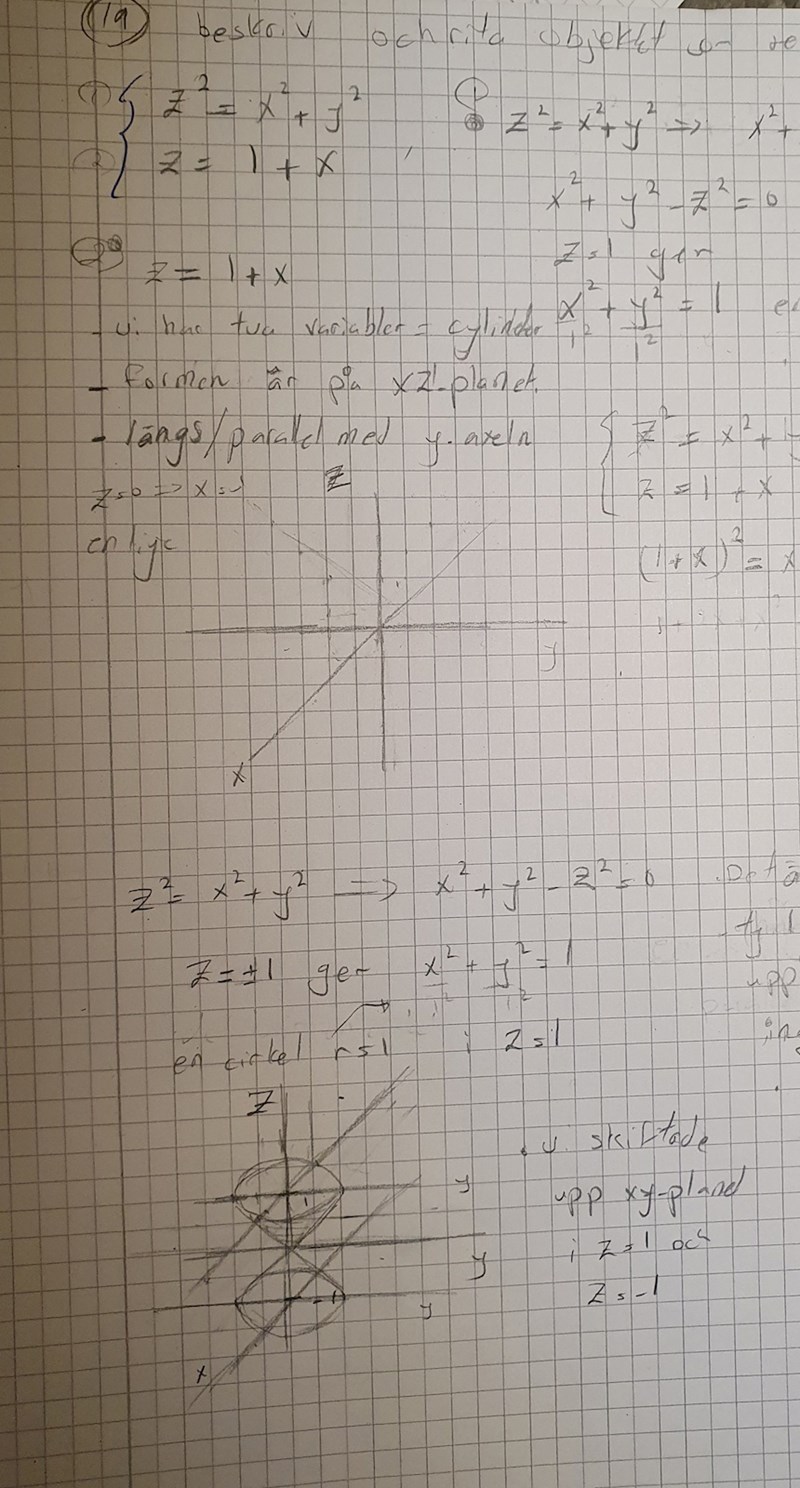 19 beskriv och rita objekt
① z² = x² + y²
② z = 1 + x
① z² = x² + y² ⇒ x² +
x² + y² - z² = 0
z = 1 ger
x²/1² + y²/1² = 1
② z = 1 + x
- vi har två variabler = cylinder
- formen är på xz-planet.
- längs/parallel med y-axeln
z=0 => x=-1
z² = x² +
z = 1 + x
(1+x)² = x
z
y
x
z² = x² + y² ⇒ x² + y² - z² = 0
z = ±1 ger x²/1² + y²/1² = 1
upp
en cirkel r=1 i z=1
z
y
y
y
x
1
-1
. vi skiftade
upp xy-pland
i z=1 och
z=-1